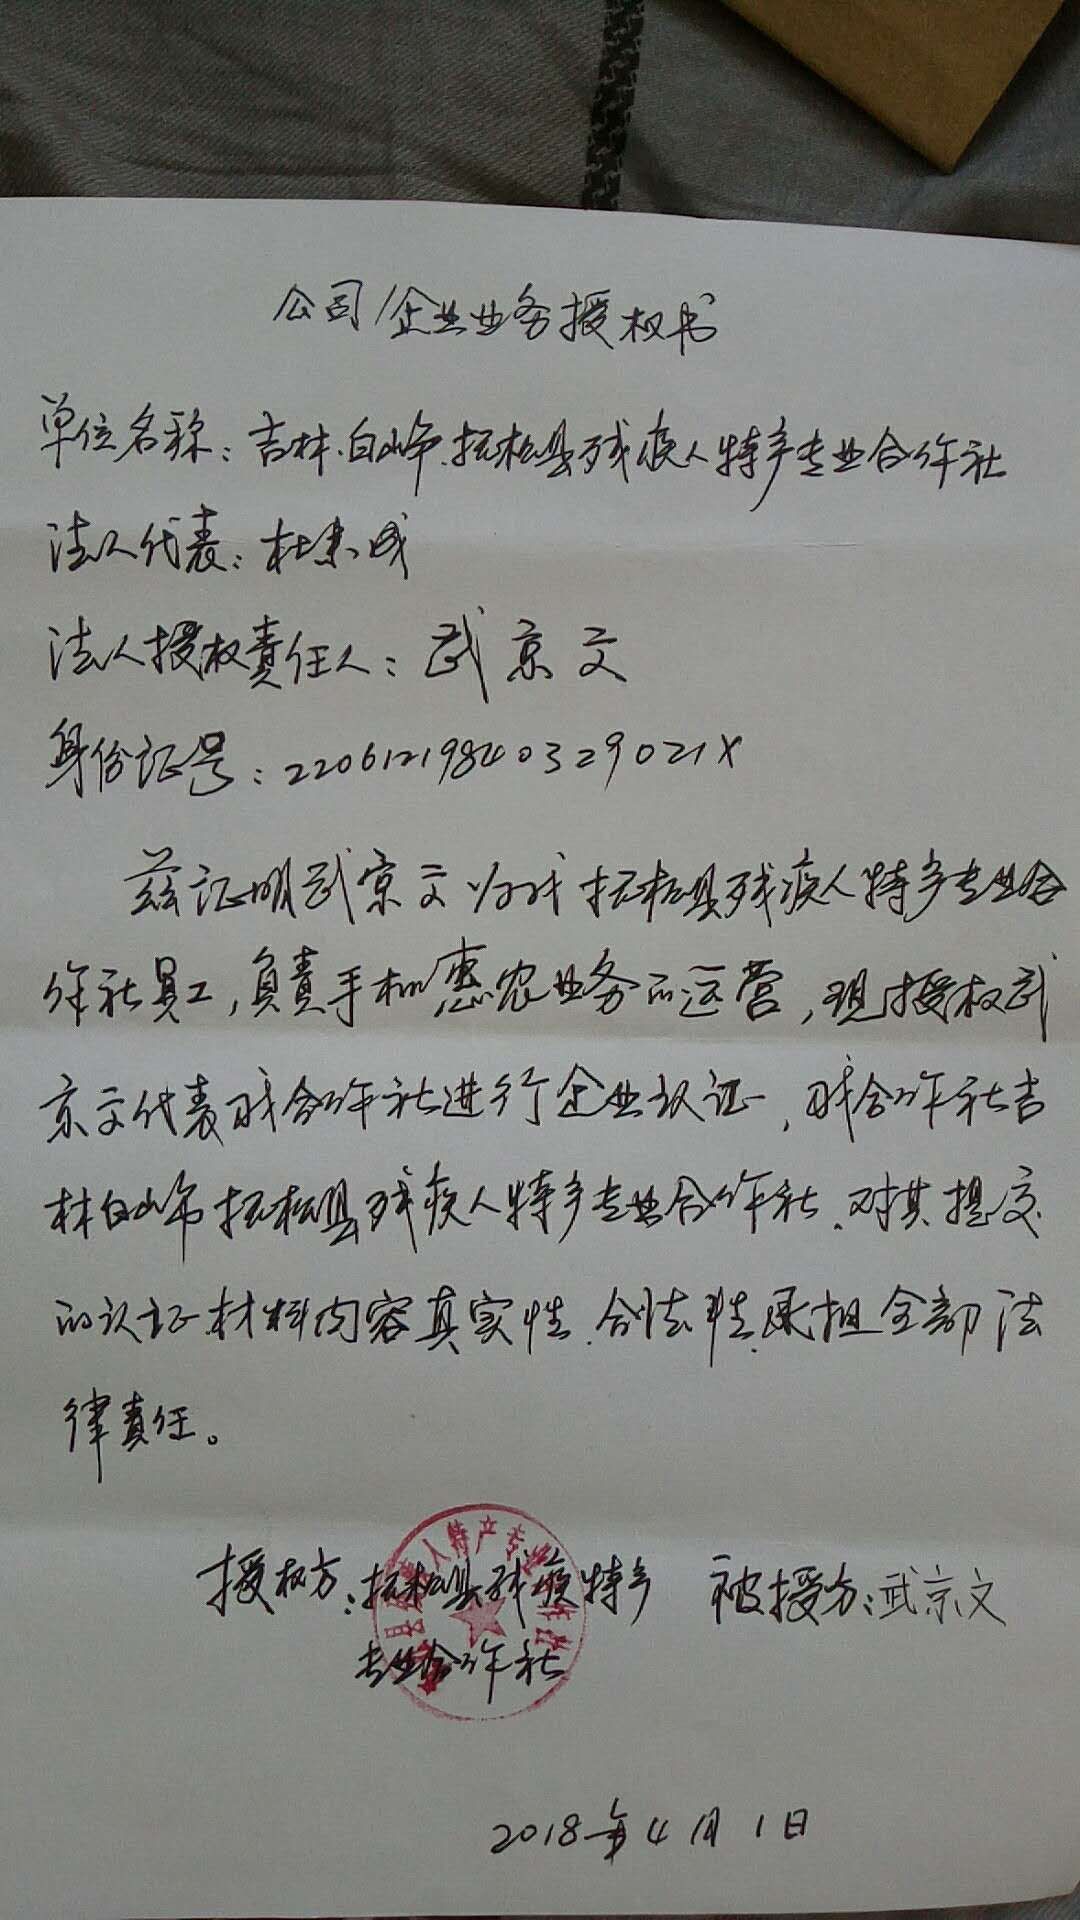 公司/企业业务授权书
单位名称：吉林.白山市.抚松县残疾人特产专业合作社
法人代表：杜 成
法人授权责任人：武京文
身份证号：22061219840329021X
兹证明武京文为我抚松县残疾人特产专业合
作社员工，负责手机惠农业务的运营，现授权武
京文代表我合作社进行企业认证，我合作社吉
林白山市抚松县残疾人特产专业合作社.对其提交
的认证材料内容真实性.合法性.承担全部法
律责任。
授权方：抚松县残疾特产
专业合作社
被授方：武京文
县残疾人特产专业合作社
2018年4月1日